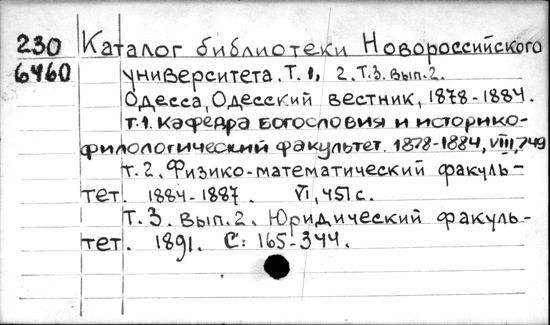 230 Каталог библиотеки Новороссийского
6460 университета. Т. 1, 2. Т.3. Вып.2.
Одесса, Одесский вестник, 1878-1884.
Т.1. Кафедра богословия и историко-
филологический факультет. 1878-1884, VIII, 749
Т.2. Физико-математический факуль-
тет. 1884-1887. VI, 451 с.
Т.3. Вып.2. Юридический факуль-
тет. 1891. С: 165-344.